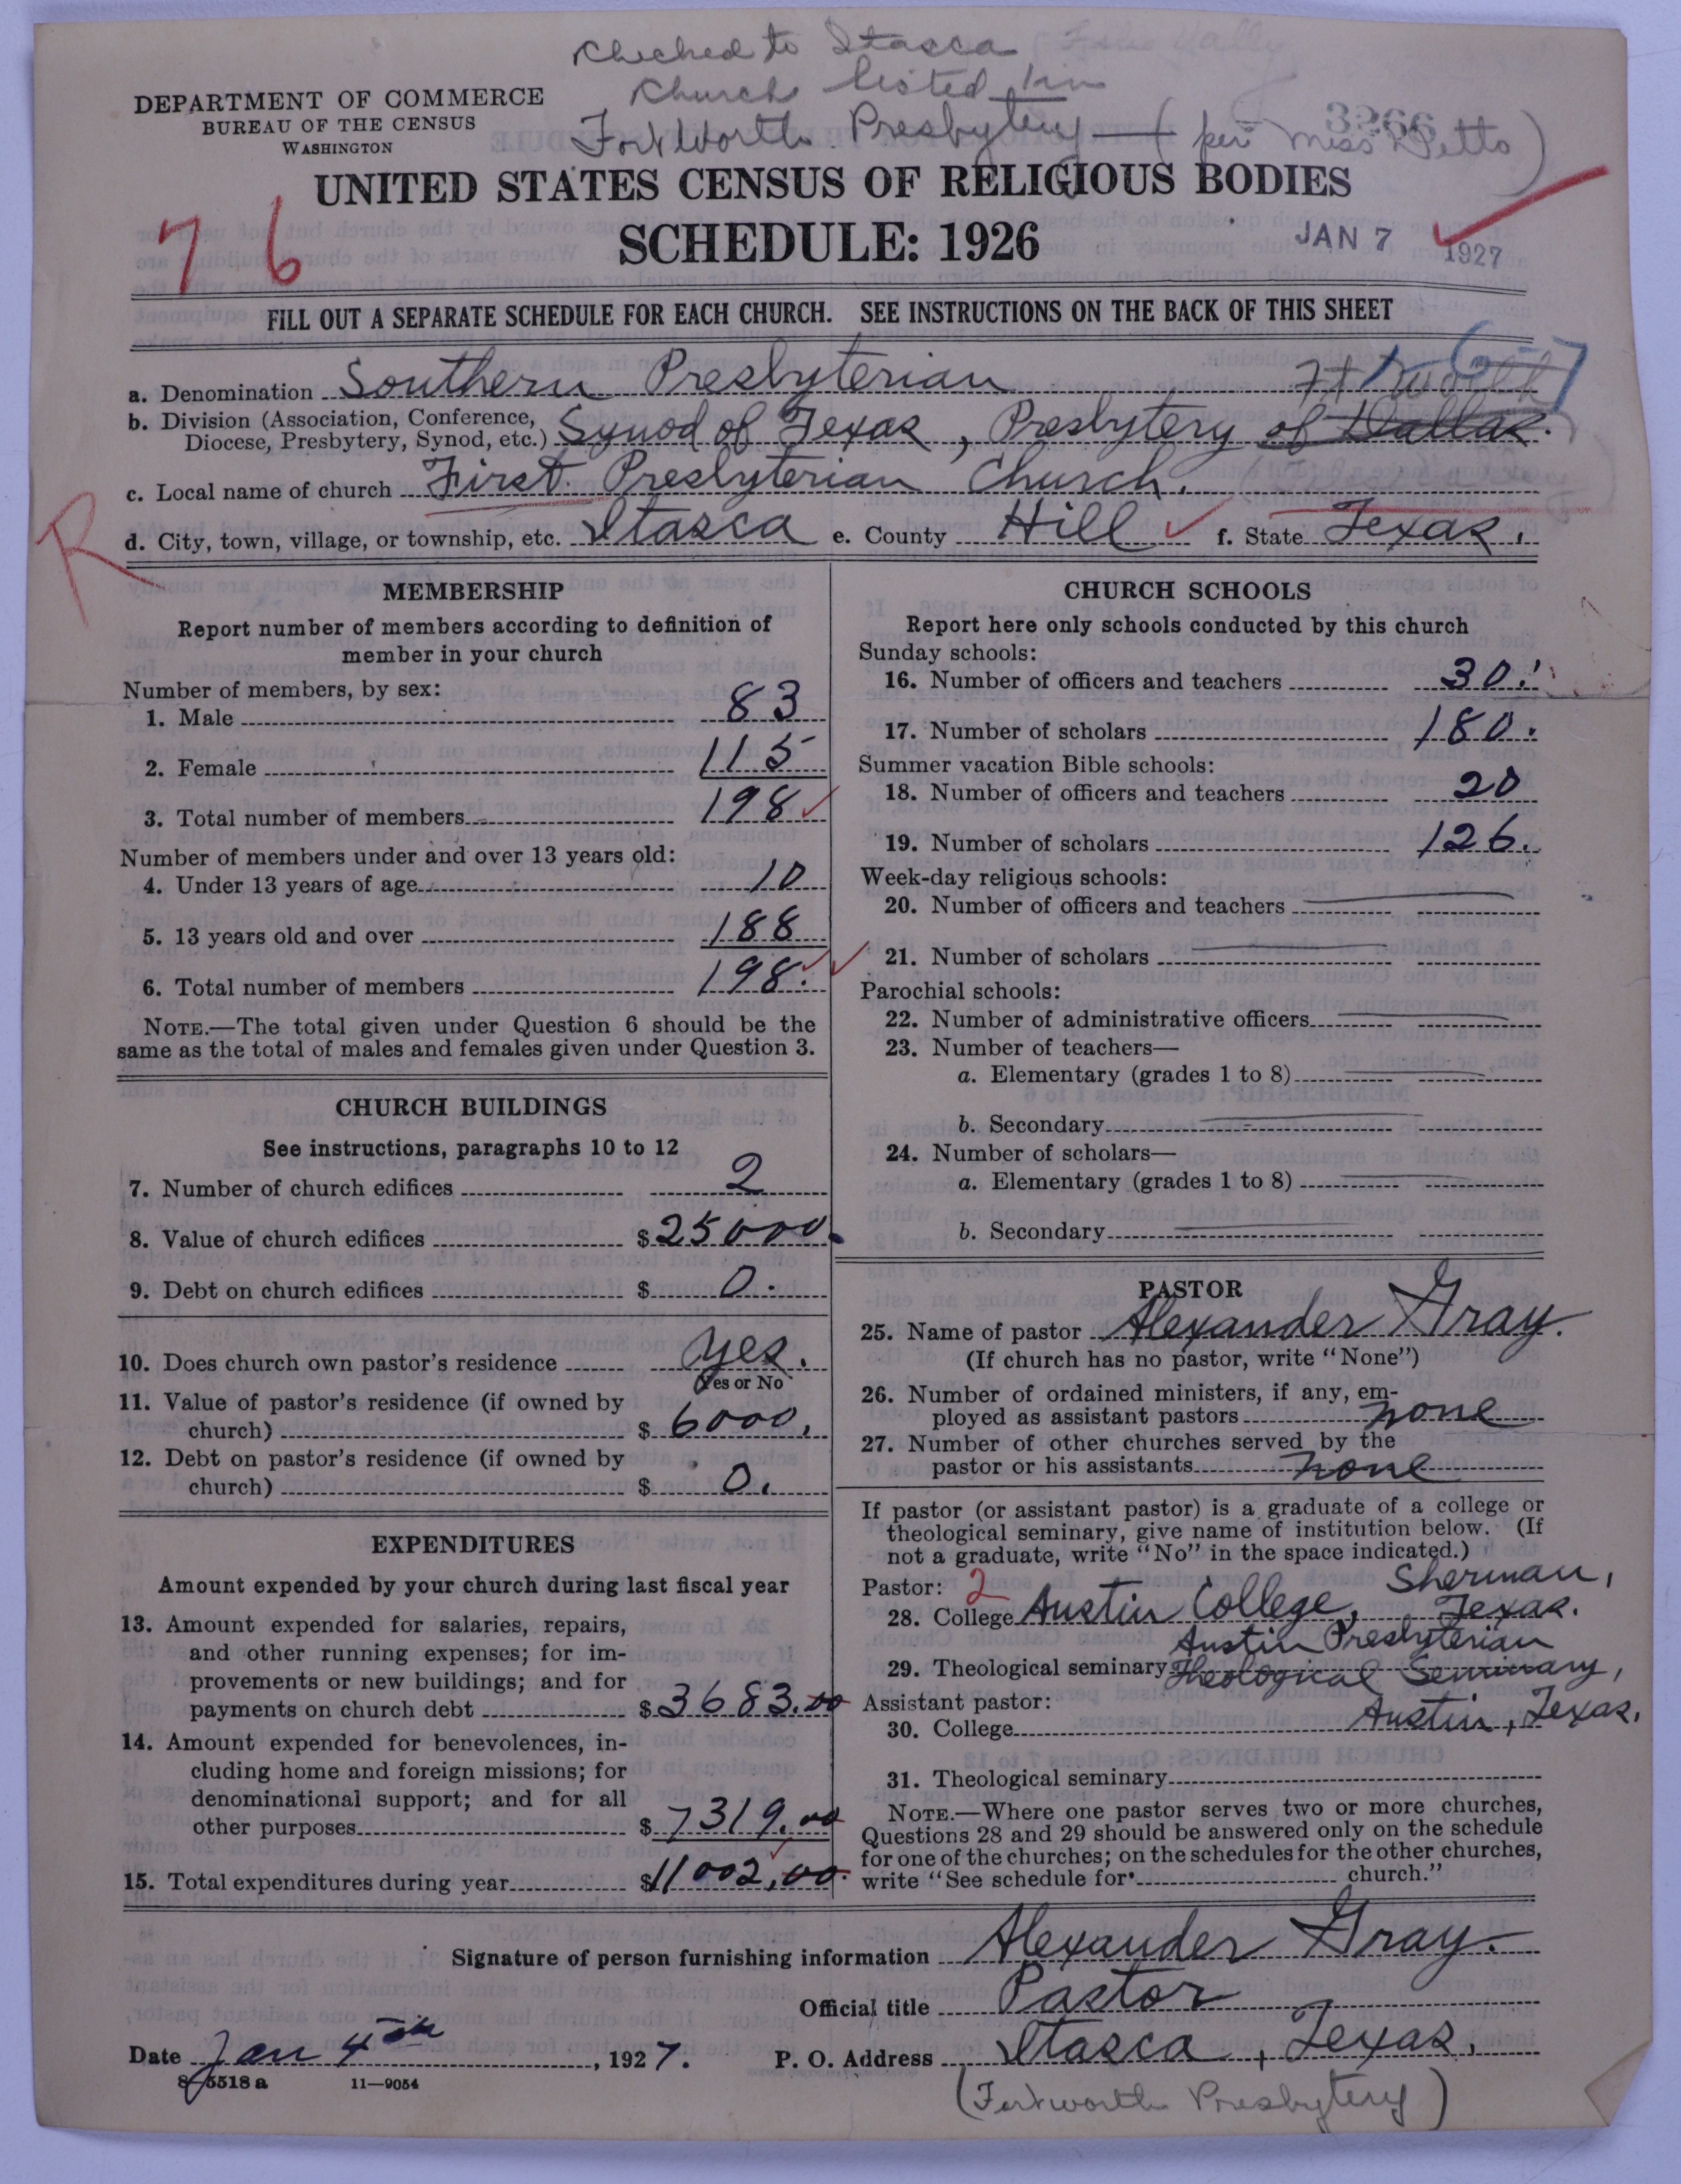 Checked to Itasca
Church listed in
Fort Worth Presbytery — (per Miss Detto)
3266
DEPARTMENT OF COMMERCE
BUREAU OF THE CENSUS
WASHINGTON
UNITED STATES CENSUS OF RELIGIOUS BODIES
SCHEDULE: 1926
76
JAN 7 1927
FILL OUT A SEPARATE SCHEDULE FOR EACH CHURCH. SEE INSTRUCTIONS ON THE BACK OF THIS SHEET
a. Denomination Southern Presbyterian
Ft Worth
b. Division (Association, Conference,
Diocese, Presbytery, Synod, etc.) Synod of Texas, Presbytery of Dallas.
c. Local name of church First Presbyterian Church.
R
d. City, town, village, or township, etc. Itasca e. County Hill f. State Texas.
MEMBERSHIP
Report number of members according to definition of
member in your church
Number of members, by sex:
1. Male 83
2. Female 115
3. Total number of members 198
Number of members under and over 13 years old:
4. Under 13 years of age 10
5. 13 years old and over 188
6. Total number of members 198.
NOTE.—The total given under Question 6 should be the
same as the total of males and females given under Question 3.
CHURCH BUILDINGS
See instructions, paragraphs 10 to 12
7. Number of church edifices 2
8. Value of church edifices $25000.
9. Debt on church edifices $ 0.
10. Does church own pastor's residence yes.
Yes or No
11. Value of pastor's residence (if owned by
church) $ 6000.
12. Debt on pastor's residence (if owned by
church) $ 0.
EXPENDITURES
Amount expended by your church during last fiscal year
13. Amount expended for salaries, repairs,
and other running expenses; for im-
provements or new buildings; and for
payments on church debt $3683.00
14. Amount expended for benevolences, in-
cluding home and foreign missions; for
denominational support; and for all
other purposes $7319.00
15. Total expenditures during year $11002.00
CHURCH SCHOOLS
Report here only schools conducted by this church
Sunday schools:
16. Number of officers and teachers 30.
17. Number of scholars 180.
Summer vacation Bible schools:
18. Number of officers and teachers 20
19. Number of scholars 126.
Week-day religious schools:
20. Number of officers and teachers
21. Number of scholars
Parochial schools:
22. Number of administrative officers
23. Number of teachers—
a. Elementary (grades 1 to 8)
b. Secondary
24. Number of scholars—
a. Elementary (grades 1 to 8)
b. Secondary
PASTOR
25. Name of pastor Alexander Gray.
(If church has no pastor, write "None")
26. Number of ordained ministers, if any, em-
ployed as assistant pastors none
27. Number of other churches served by the
pastor or his assistants none
If pastor (or assistant pastor) is a graduate of a college or
theological seminary, give name of institution below. (If
not a graduate, write "No" in the space indicated.)
Pastor: 2 Sherman,
28. College Austin College, Texas.
Austin Presbyterian
29. Theological seminary Theological Seminary,
Assistant pastor: Austin, Texas.
30. College
31. Theological seminary
NOTE.—Where one pastor serves two or more churches,
Questions 28 and 29 should be answered only on the schedule
for one of the churches; on the schedules for the other churches,
write "See schedule for church."
Signature of person furnishing information Alexander Gray.
Official title Pastor
Date Jan 4th, 1927. P. O. Address Itasca, Texas.
8-5518 a 11—9054
(Fortworth Presbytery)